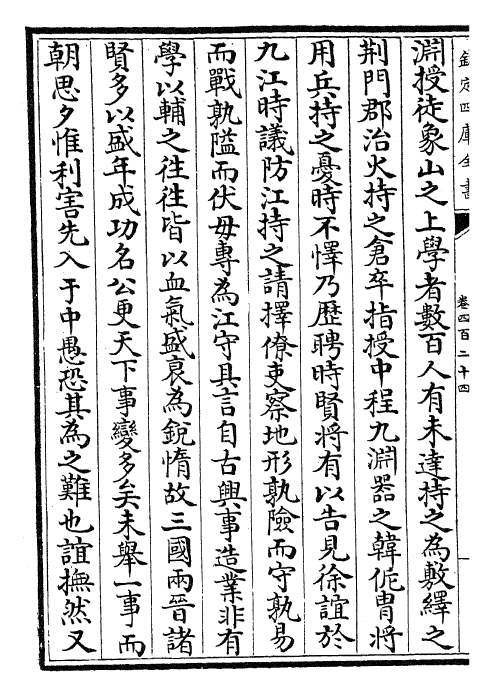 欽定四庫全書
卷四百二十四
淵授徒象山之上學者數百人有未達持之為敷繹之
荆門郡治火持之倉卒指授中程九淵器之韓侂冑將
用兵持之憂時不懌乃歷聘時賢將有以告見徐誼於
九江時議防江持之請擇僚吏察地形孰險而守孰易
而戰孰隘而伏毋專為江守具言自古興事造業非有
學以輔之徃徃皆以血氣盛衰為銳惰故三國兩晉諸
賢多以盛年成功名公更天下事變多矣未舉一事而
朝思夕惟利害先入于中愚恐其為之難也誼撫然又